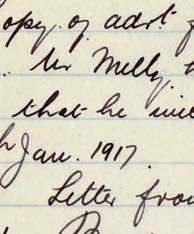 opy of advt.
. Mr Melly
that he
Jan. 1917.
Letter from